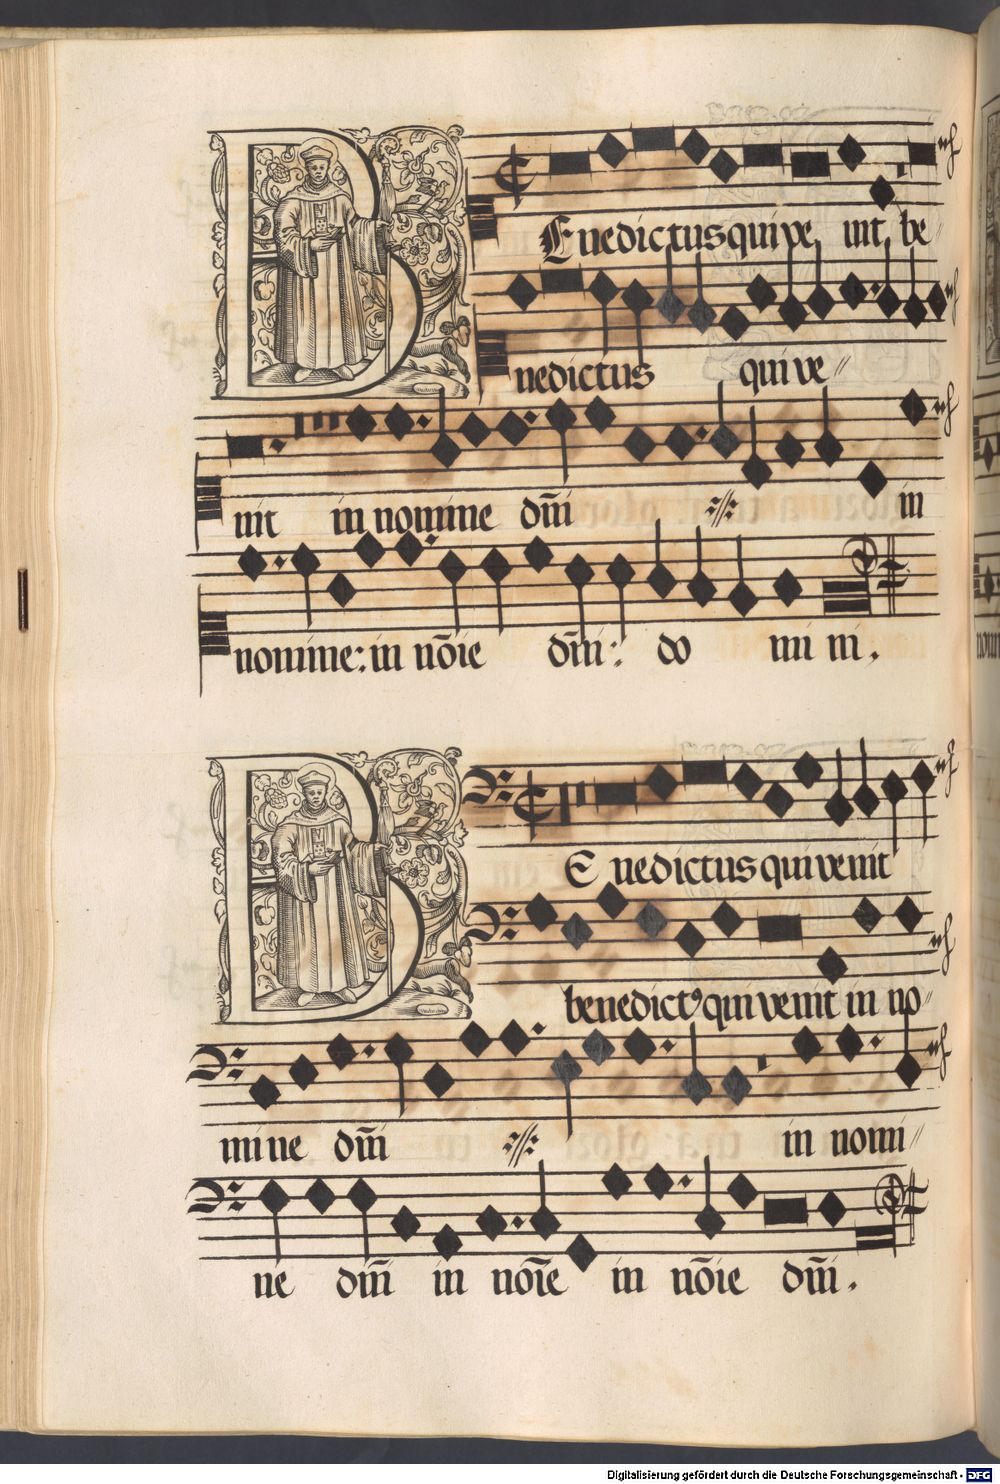 BEnedictus qui ve nit be
nedictus qui ve
nit in nomine dm̄i in
nomine: in nōie dm̄i: do mi ni.
BEnedictus qui venit
benedictꝰ qui venit in no
mine dm̄i in nomi
ne dm̄i in nōie in nōie dm̄i.
Digitalisierung gefördert durch die Deutsche Forschungsgemeinschaft - DFG